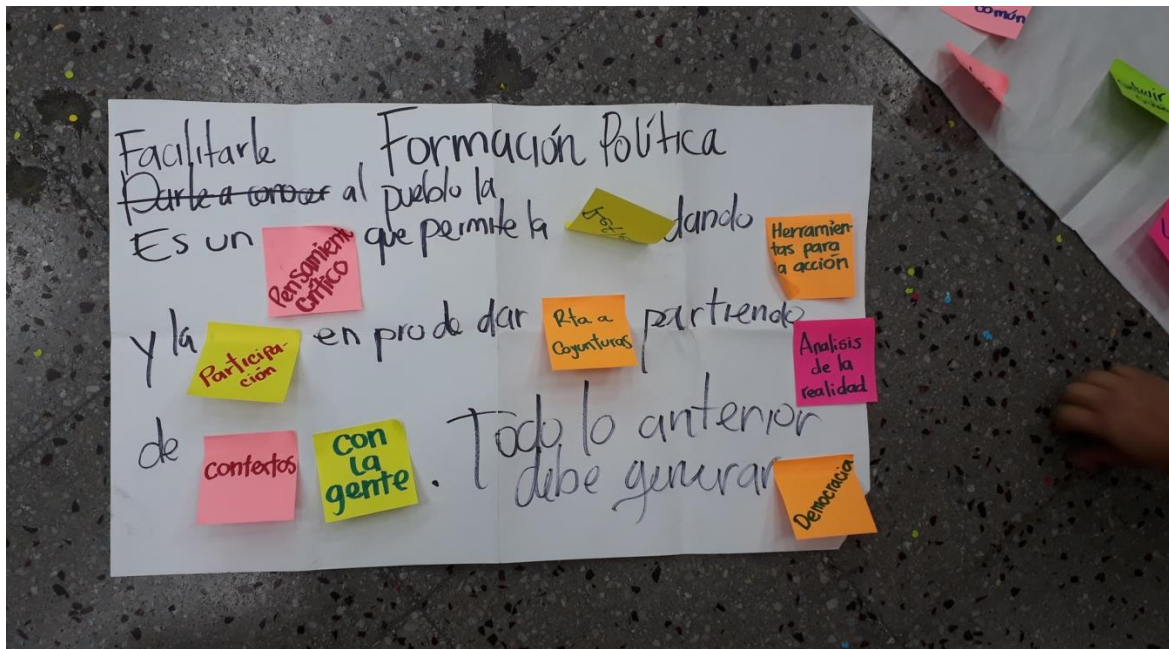 Facilitarle Formación Política
Darle a conocer al pueblo la
Es un Pensamiento Crítico que permite la dando Herramien-
tas para
la acción
y la Participa-
ción en pro de dar Rta a
Coyunturas partiendo Analisis
de la
realidad
de contextos con
la
gente . Todo lo anterior
debe generar Democracia
común